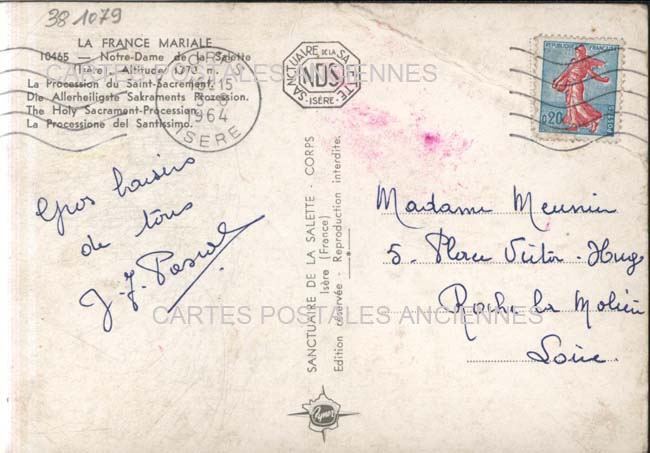 38 1079
LA FRANCE MARIALE
10465 — Notre-Dame de la Salette
(Isère) - Altitude 1.770 m.
La Procession du Saint-Sacrement.
Die Allerheiligste Sakraments Prozession.
The Holy Sacrament-Procession.
La Processione del Santissimo.
CORPS
15
1964
ISERE
SANCTUAIRE DE LA SALETTE
NDS
-ISÈRE-
REPUBLIQUE FRANÇAISE
0,20
POSTES
CARTES POSTALES ANCIENNES
Gros baisers
de tous
J-J. Pascal
SANCTUAIRE DE LA SALETTE - CORPS
Isère (France)
Edition réservée - Reproduction interdite.
Madame Meunier
5, Place Victor-Hugo
Roche la Molière
Loire
CARTES POSTALES ANCIENNES